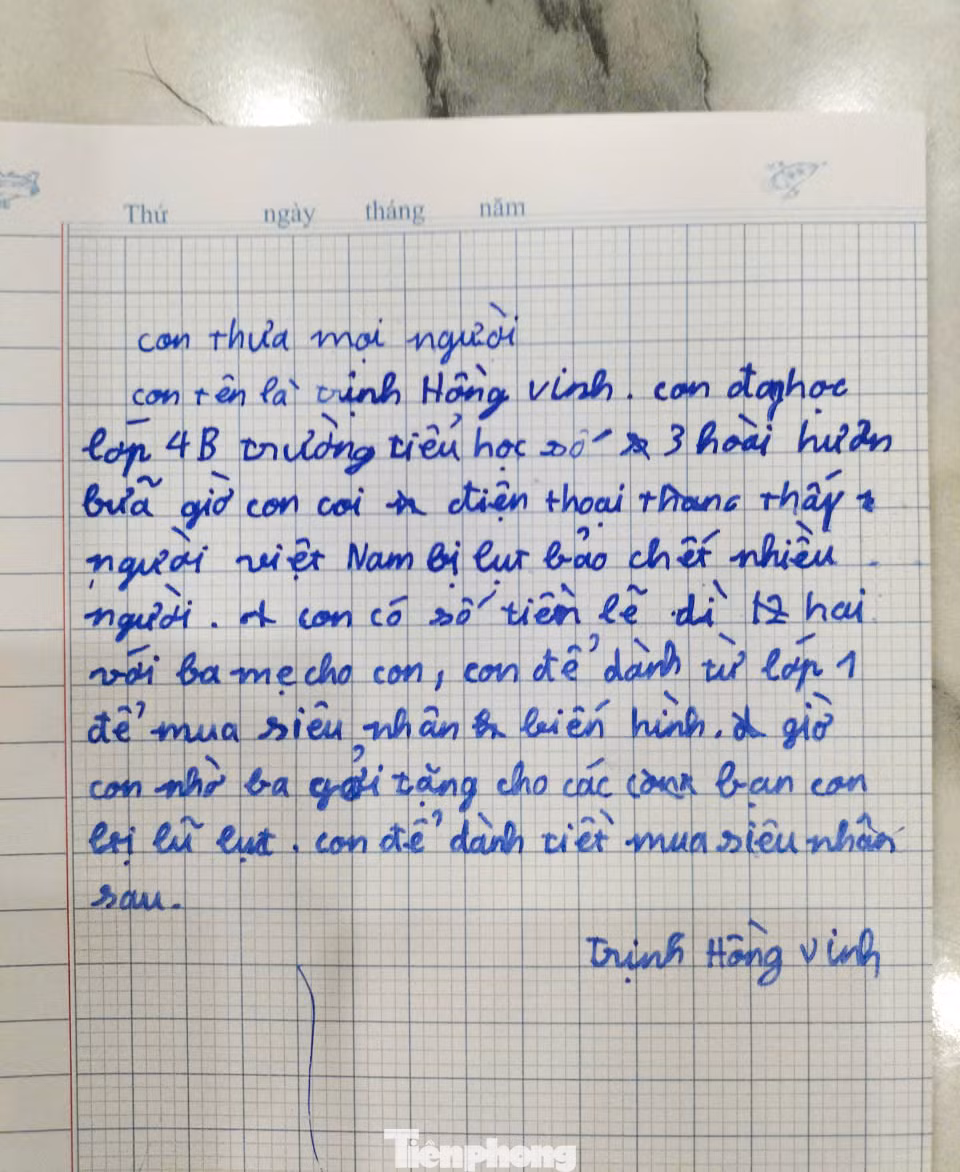 Thứ ngày tháng năm
con thưa mọi người
con tên là trịnh Hồng vinh. con đag học
lớp 4B trường tiểu học số 3 hoài hươn
bữa giờ con coi điện thoại thấy
người việt Nam bị lụt bảo chết nhiều
người. con có số tiền lẽ dì 12 hai
với ba mẹ cho con, con để dành từ lớp 1
để mua siêu nhân biến hình. giờ
con nhờ ba gởi tặng cho các bạn con
bị lũ lụt. con để dành tiết mua siêu nhân
sau.
Trịnh Hồng vinh
Tiênphong